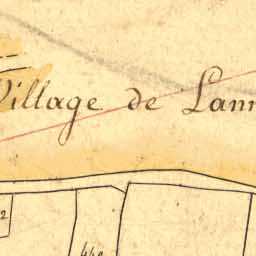 Village de Lann
2